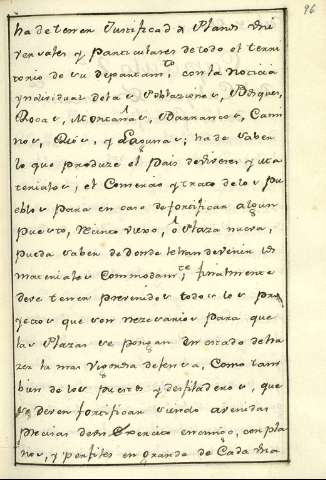 96
ha de tener Justificad.s Planos Uni
versales y particulares de todo el terri
torio de su departam.to, con la noticia
yndividual de las Poblaziones, Bosques,
Rocas, Montañas, Barrancos, Cami
nos, Rios, y Lagunas; ha de saver
lo que produze el Pais de viveres y ma
teriales; el Comercio y trato de los pu
eblos para en caso de fortificar algun
puerto, ô Plaza nueva,
pueda saver de donde le han de venir los
materiales Commodam.te; finalmente
deve tener prevenidos todos los pro
yectos que son nezesarios para que
las Plazas se pongan en estado de ha
zer la mas vigorosa defensa, Como tam
bien de los puestos y desfiladeros, que
se deven fortificar siendo avenidas
precisas de un Exercito enemigo, con pla
nos, y perfiles en grande de Cada